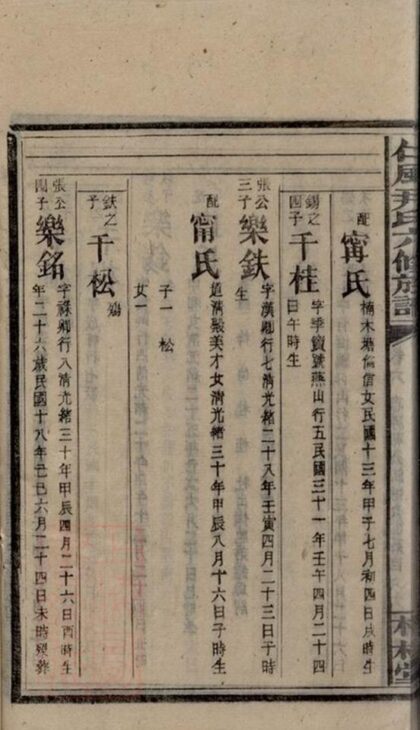 尹氏六修族譜
配
甯氏
楠木塘倫信女民國十三年甲子七月初四日戌時生
錫公
四子
千桂
字季簣號燕山行五民國三十一年壬午四月二十四
日午時生
張公
三子
樂鉄
字漢卿行七清光緒二十八年壬寅四月二十三日子時
生
配
甯氏
清殿美才女清光緒三十年甲辰八月十六日子時生
子一 松
女一
鉄之
子
千松
殤
張公
四子
樂銘
字祿卿行八清光緒三十年甲辰四月二十六日酉時生
年二十六歲民國十八年己巳六月二十四日未時歿葬